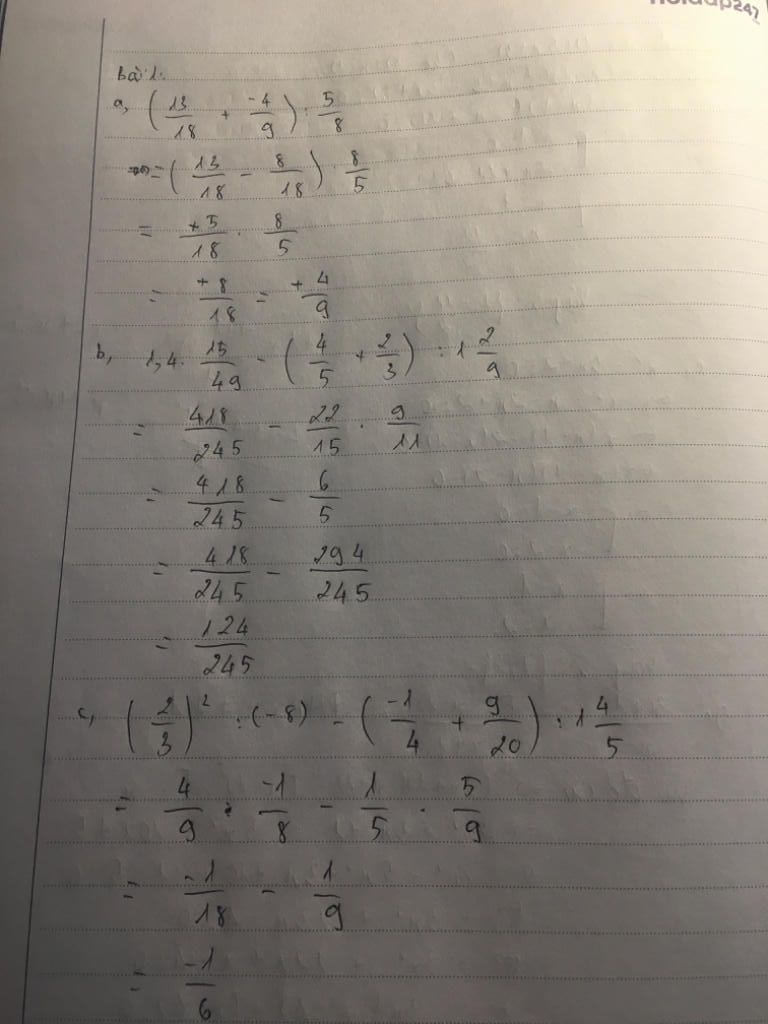 Bài 1:
a, (13/18 + -4/9) : 5/8
= (13/18 - 8/18) · 8/5
= +5/18 · 8/5
= +8/18 = +4/9
b, 1,4 · 15/49 - (4/5 + 2/3) : 1 2/9
= 418/245 - 22/15 · 9/11
= 418/245 - 6/5
= 418/245 - 294/245
= 124/245
c, (2/3)² : (-8) - (-1/4 + 9/20) : 1 4/5
= 4/9 · -1/8 - 1/5 · 5/9
= -1/18 - 1/9
= -1/6